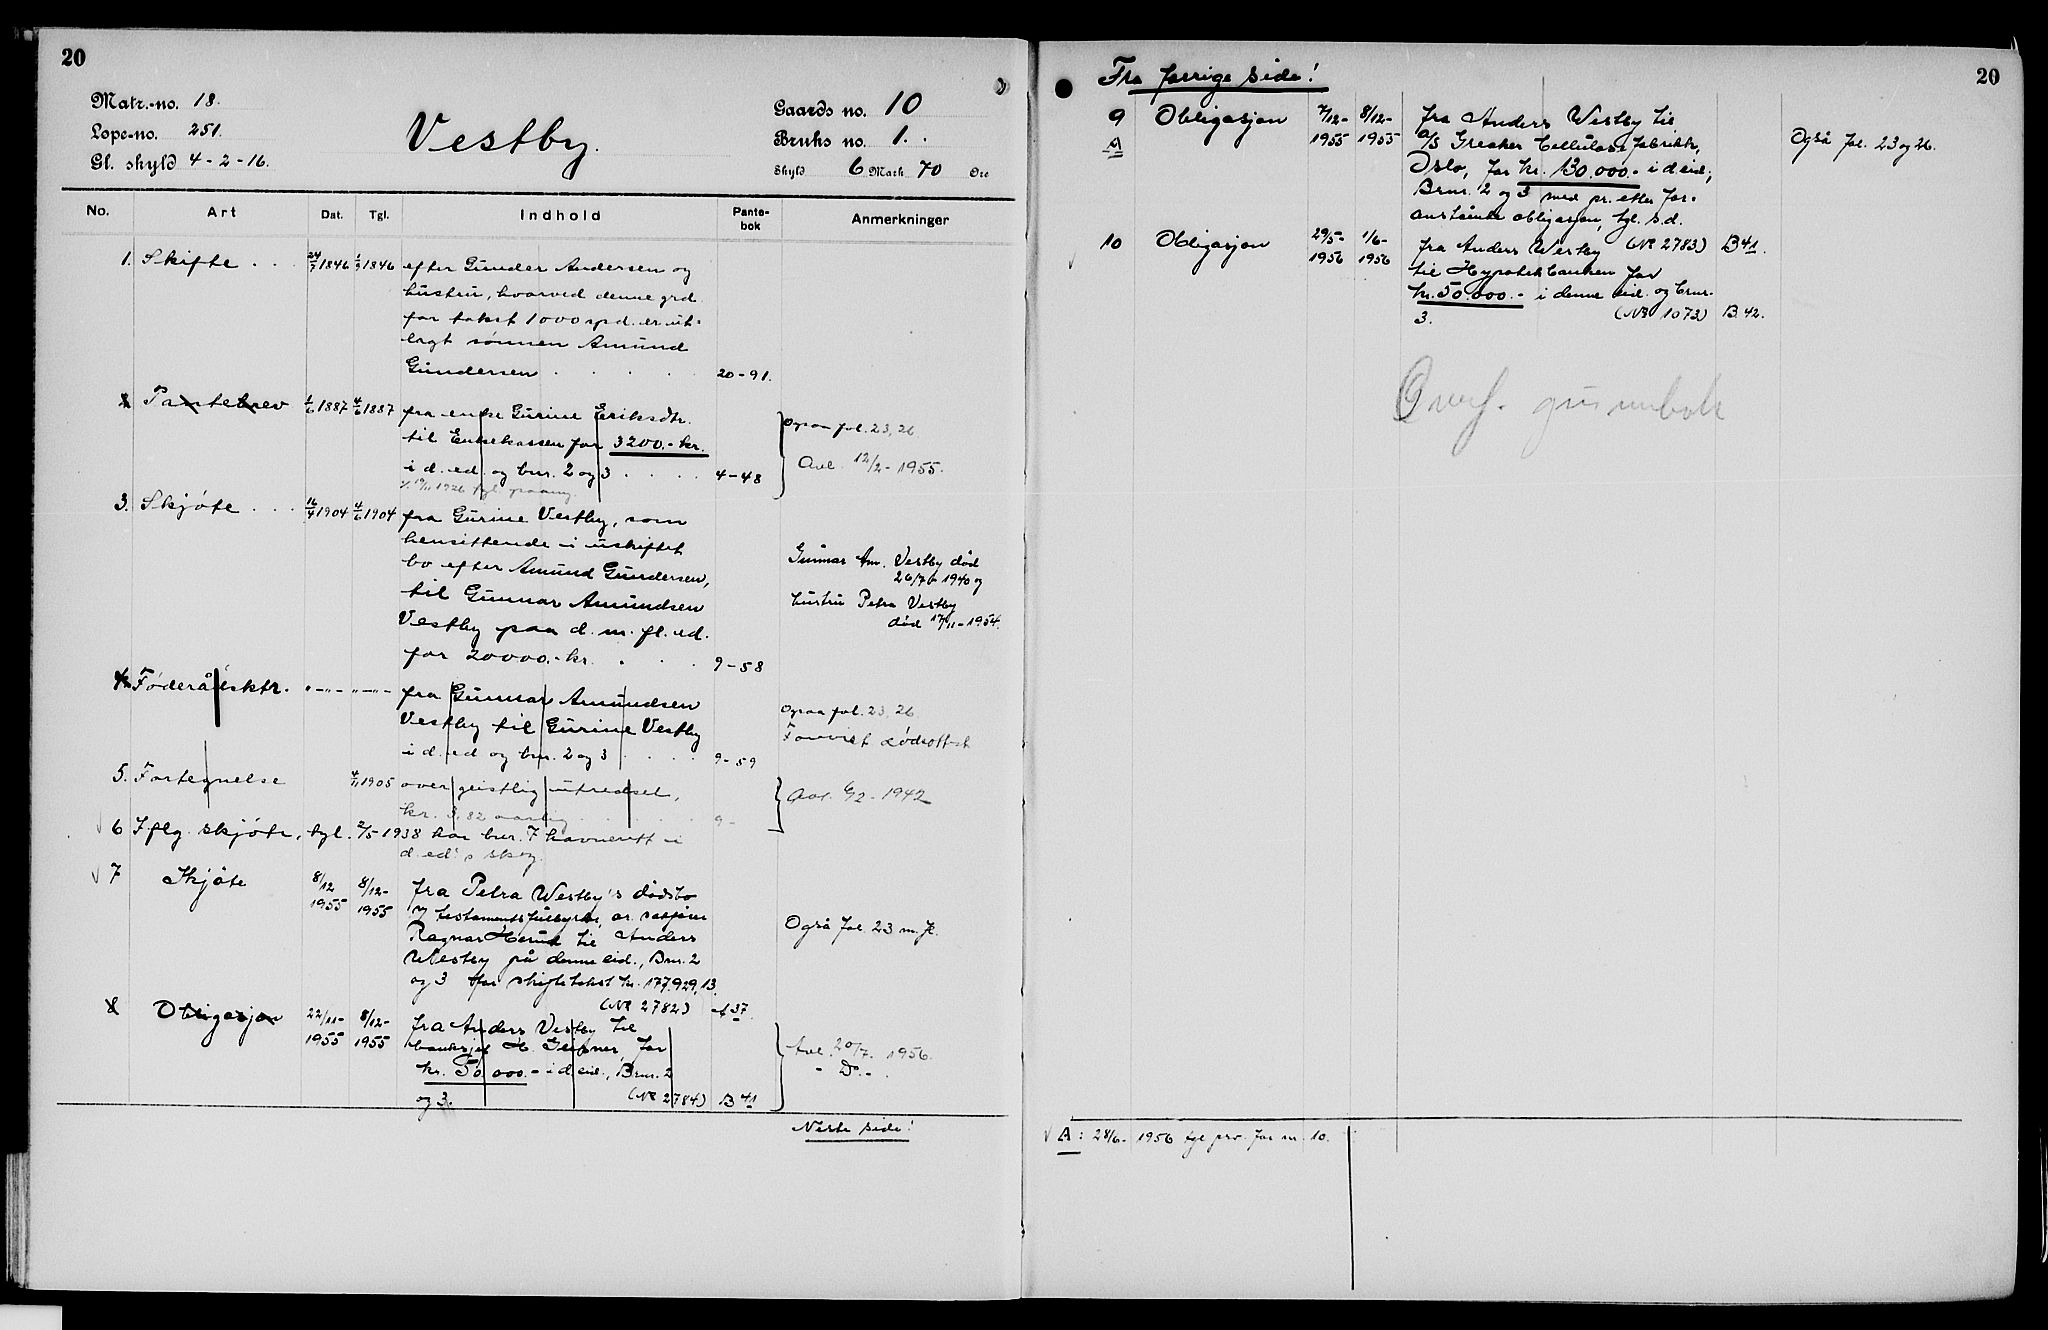 20
Matr.-no. 18.
Lope-no. 251.
Gl. skyld 4-2-16.
Vestby.
Gaards no. 10
Bruks no. 1.
Skyld 6 Mark 70 Øre
No. Art Dat. Tgl. Indhold Pante-bok Anmerkninger
1. Skifte . . . 24/7 1846 1/9 1846 efter Gunder Andersen og
hustru, hvorved denne grd.
for takst 1000 spd. er ut-
lagt sønnen Amund
Gundersen . . . . . 20-91.
2 Pantebrev 1/6 1887 4/6 1887 fra enke Gurine Eriksdtr.
til Enkekassen for 3200.- kr. ogsaa fol. 23, 26
i d. ed. og bnr. 2 og 3 . . . . 4-48 Avl. 12/2-1955.
1926 tgl.
3. Skjøte . . . 16/4 1904 4/6 1904 fra Gurine Vestby, som
hensittende i uskiftet
bo efter Amund Gundersen,
til Gunnar Amundsen
Vestby paa d. m. fl. ed.
for 20000.- kr. . . . 9-58
Gunnar Am. Vestby død
26/7-1940 og
hustru Petra Vestby
død 17/11-1954.
4. Føderådsktr. "-"- "-"- fra Gunnar Amundsen
Vestby til Gurine Vestby
i d. ed og bnr. 2 og 3 . . . . 9-59
ogsaa fol. 23, 26
Forevist dødsattest
5. Fortegnelse 4/11 1905 over geistlig utredsel,
kr. 3,82 aarlig . . . . . 9-
Avl. 6/2-1942
6 Iflg. skjøte, tgl. 2/5-1938 har bnr. 7 havnerett i
d. ed's skog.
7 Skjøte 8/12 1955 8/12-1955 fra Petra Westby's dødsbo
v/ testamentsfullbyrder, or. sakfører
Ragnar Herud til Anders
Westby på denne eid., Bnr. 2
og 3 for skiftetakst kr. 177.929,13.
(NR 2782) A 37.
Også fol. 23 m. fl.
8 Obligasjon 22/11-1955 8/12-1955 fra Anders Vestby til
banksjef H. Gleisner, for
kr. 50.000.- i d. eid., Bnr. 2
og 3. (NR 2784) B 41
Avl. 20/7. 1956.
- D. -
Neste side!
20
Fra forrige side!
9 Obligasjon 7/12-1955 8/12-1955 fra Anders Westby til
A
A/S Greaker Cellulosefabrikk,
Oslo, for kr. 130.000.- i d. eid.,
Bnr. 2 og 3 med pr. etter for-
anstående obligasjon, tgl. s.d.
(NR 2783) B 41.
Også fol. 23 og 26.
10 Obligasjon 29/5-1956 1/6-1956 fra Anders Westby
til Hypotekbanken for
kr. 50.000.- i denne eid. og bnr.
3. (NR 1073) B 42.
Overf. grunnbok
A: 28/6-1956 tgl prv. for nr. 10.